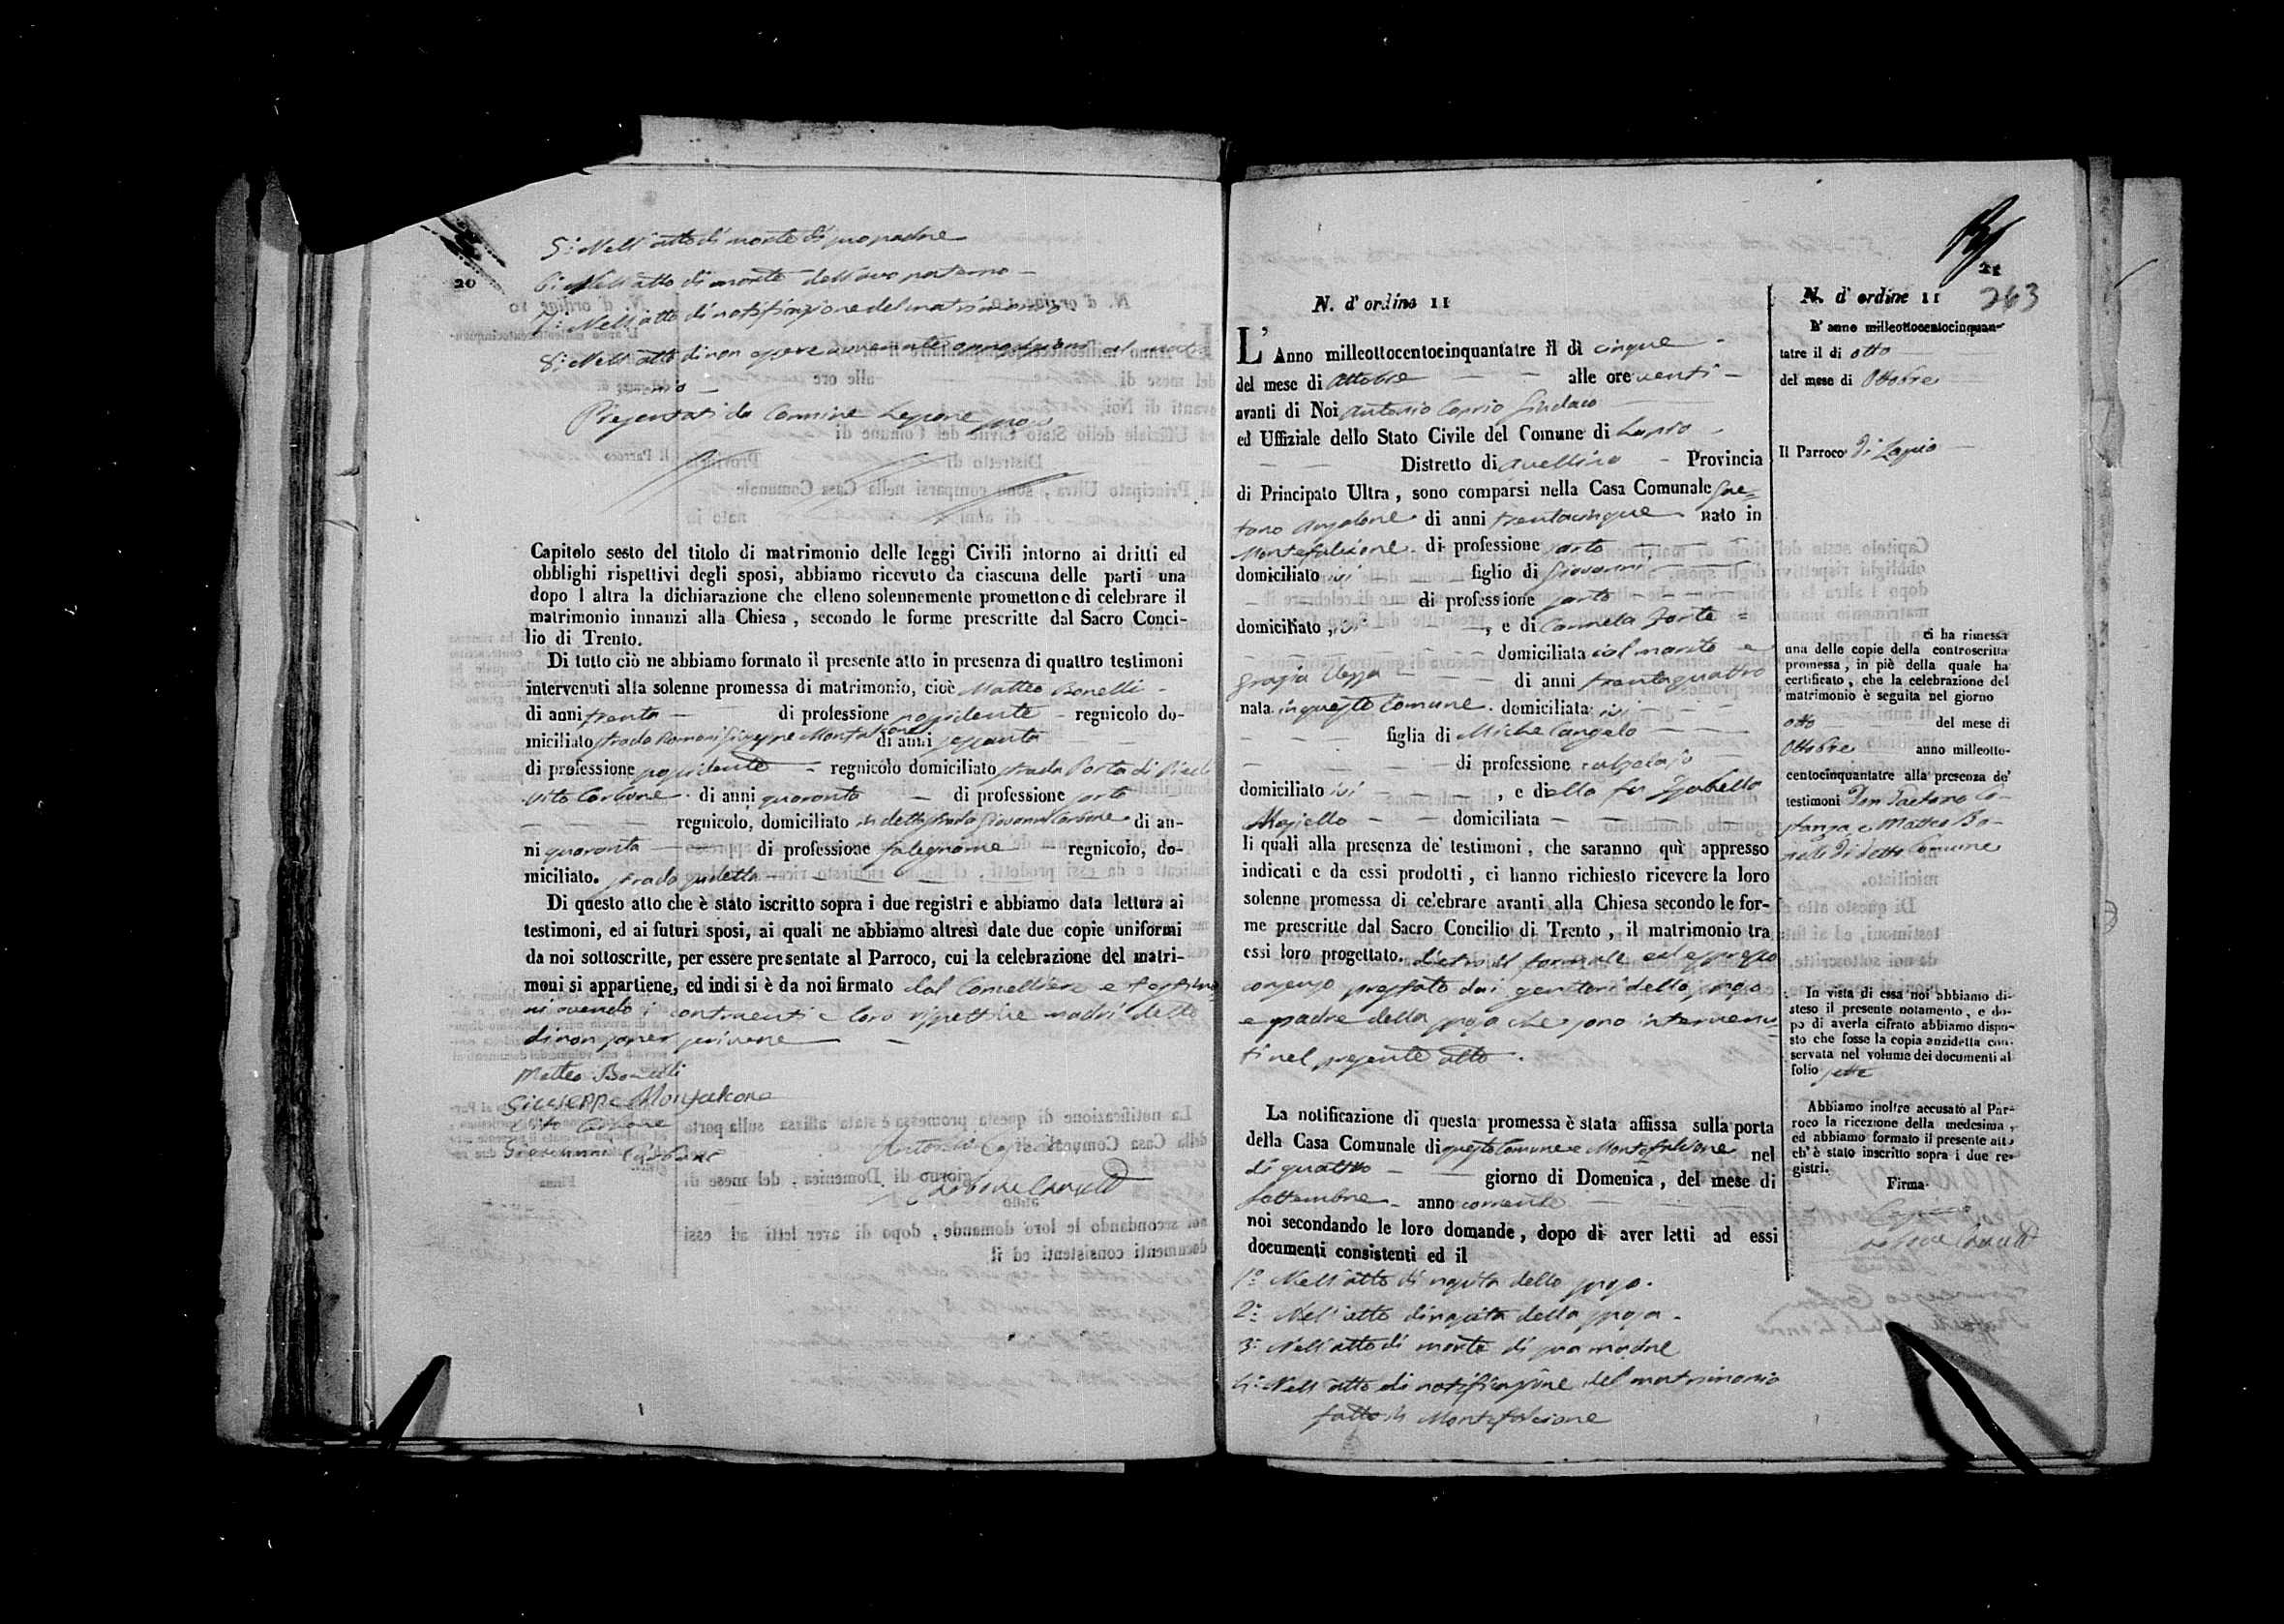 20
5.° Nell'atto di morte di suo padre
6.° Nell'atto di morte dell'avo paterno
7.° Nell'atto di notificazione del matrimonio
8.° Nell'atto di non essere avvenute opposizioni al matri-
monio
Presentati da Carmine Lepore sposo
Capitolo sesto del titolo di matrimonio delle leggi Civili intorno ai dritti ed
obblighi rispettivi degli sposi, abbiamo ricevuto da ciascuna delle parti una
dopo l altra la dichiarazione che elleno solennemente promettono di celebrare il
matrimonio innanzi alla Chiesa, secondo le forme prescritte dal Sacro Conci-
lio di Trento.
Di tutto ciò ne abbiamo formato il presente atto in presenza di quattro testimoni
intervenuti alla solenne promessa di matrimonio, cioè Matteo Bonelli
di anni trenta di professione possidente regnicolo do-
miciliato strada Romani Giuseppe Montalcone di anni sessanta
di professione possidente regnicolo domiciliato strada Porta di
Vito Carbone di anni quaranta di professione sarto
regnicolo, domiciliato in detta strada Giovanni Carbone di an-
ni quaranta di professione falegname regnicolo, do-
miciliato. strada sudetta
Di questo atto che è stato iscritto sopra i due registri e abbiamo data lettura ai
testimoni, ed ai futuri sposi, ai quali ne abbiamo altresì date due copie uniformi
da noi sottoscritte, per essere presentate al Parroco, cui la celebrazione del matri-
moni si appartiene, ed indi si è da noi firmato dal Cancelliere e testimo-
ni avendo i contraenti e loro rispettive madri detto
di non saper scrivere
Matteo Bonelli
Giuseppe Montalcone
Vito Carbone
Giovanni Carbone
Antonio Caprio
21
263
N. d' ordine 11
L' Anno milleottocentocinquantatre il dì cinque
del mese di Ottobre alle ore venti
avanti di Noi Antonio Caprio Sindaco
ed Uffiziale dello Stato Civile del Comune di Lapio
Distretto di Avellino Provincia
di Principato Ultra, sono comparsi nella Casa Comunale Gae-
tano Anzalone di anni trentacinque nato in
Montefalcione di professione sarto
domiciliato ivi figlio di Giovanni
di professione sarto
domiciliato, ivi, e di Carmela Forte
domiciliata col marito e
Grazia di anni trentaquattro
nata in questo Comune domiciliata ivi
figlia di Michelangelo
di professione calzolajo
domiciliato ivi, e della fu Isabella
domiciliata
li quali alla presenza de' testimoni, che saranno quì appresso
indicati e da essi prodotti, ci hanno richiesto ricevere la loro
solenne promessa di celebrare avanti alla Chiesa secondo le for-
me prescritte dal Sacro Concilio di Trento, il matrimonio tra
essi loro progettato. dietro il formale ed espresso
consenso prestato dai genitori dello sposo
e padre della sposa che sono intervenu-
ti nel presente atto.
La notificazione di questa promessa è stata affissa sulla porta
della Casa Comunale di questo Comune e Montefalcione nel
dì quattro giorno di Domenica, del mese di
Settembre anno corrente
noi secondando le loro domande, dopo di aver letti ad essi
documenti consistenti ed il
1.° Nell'atto di nascita dello sposo.
2.° Nell'atto di nascita della sposa.
3.° Nell'atto di morte di sua madre
4.° Nell'atto di notificazione del matrimonio
fatto in Montefalcione
N. d' ordine 11
L' anno milleottocentocinquan-
tatre il di otto
del mese di Ottobre
Il Parroco di Lapio
ci ha rimessa
una delle copie della controscritta
promessa, in piè della quale ha
certificato, che la celebrazione del
matrimonio è seguita nel giorno
otto del mese di
Ottobre anno milleotto-
centocinquantatre alla presenza de'
testimoni Don Gaetano Co-
stanza e Matteo Bo-
nelli di detto Comune
In vista di essa noi abbiamo di-
steso il presente notamento, e do-
po di averla cifrato abbiamo dispo-
sto che fosse la copia anzidetta con-
servata nel volume dei documenti al
folio sette
Abbiamo inoltre accusato al Par-
roco la ricezione della medesima,
ed abbiamo formato il presente atto
ch'è stato inscritto sopra i due re-
gistri.
Firma
Caprio